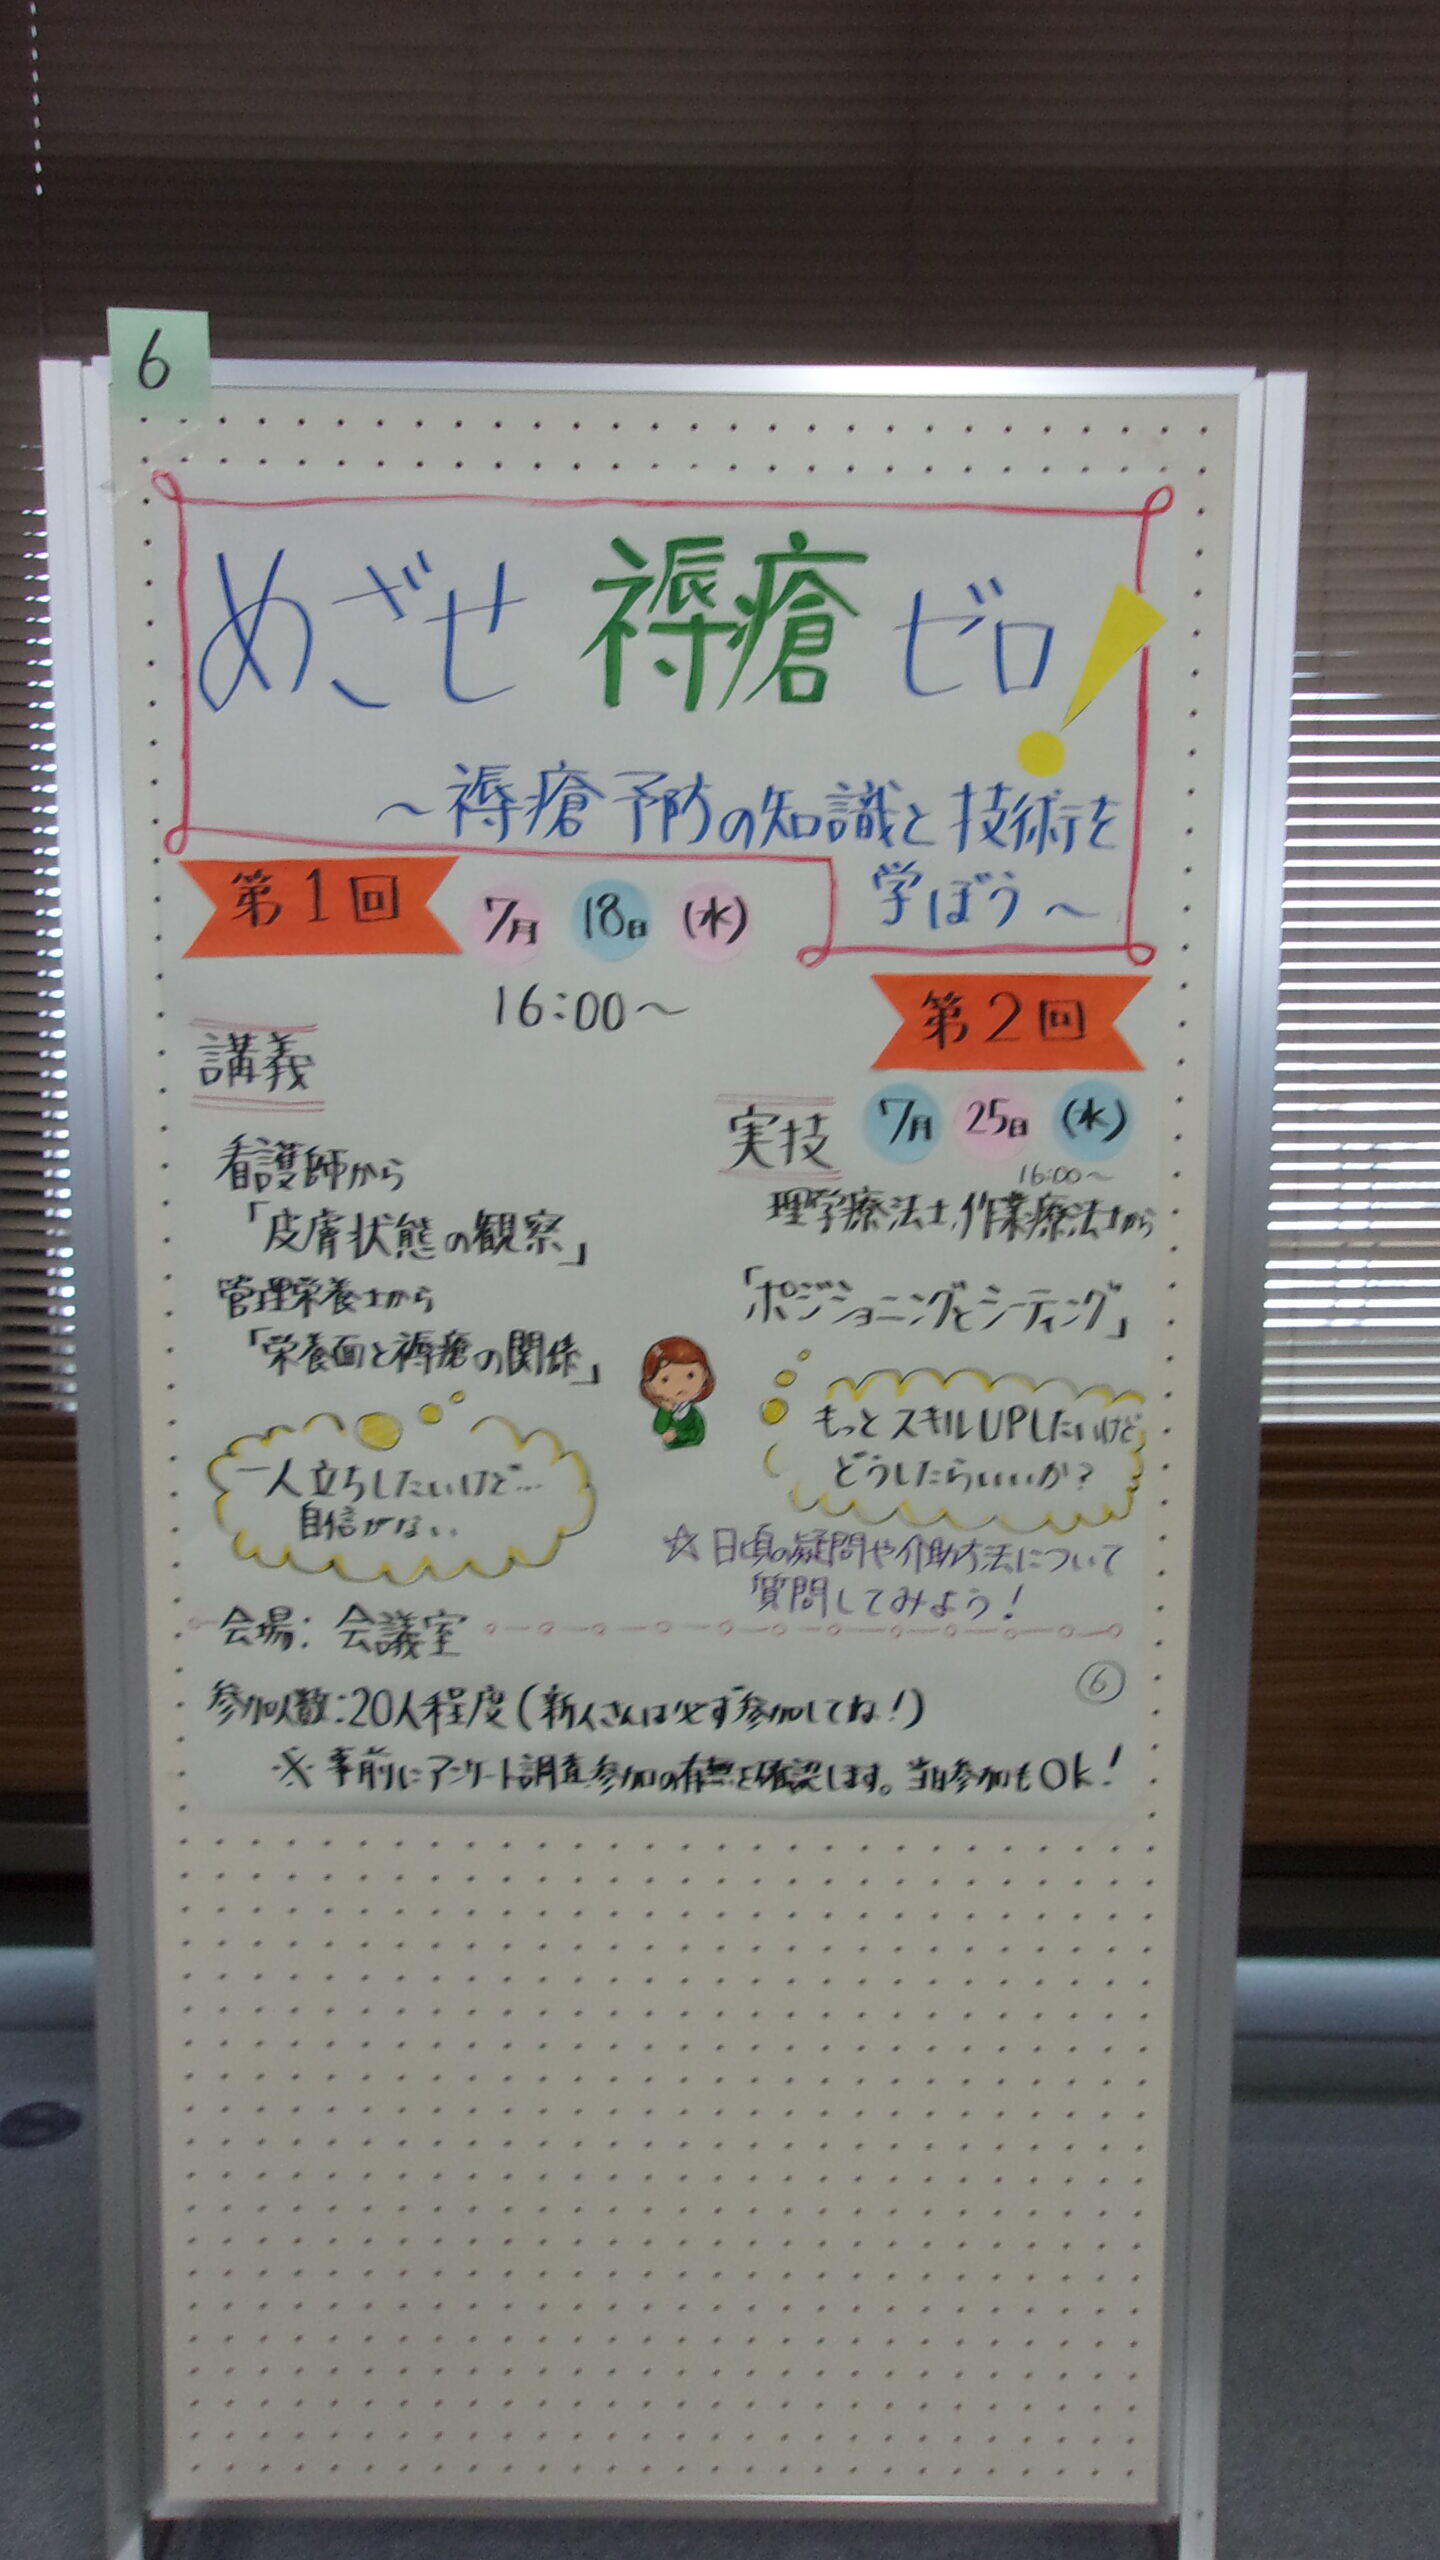 6
めざせ 褥瘡 ゼロ!
～褥瘡予防の知識と技術を
学ぼう～
第1回 7月 18日 (水)
16:00～
講義
看護師から
「皮膚状態の観察」
管理栄養士から
「栄養面と褥瘡の関係」
一人立ちしたいけど…
自信がない
第2回
実技 7月 25日 (水)
16:00～
理学療法士,作業療法士から
「ポジショニングとシーティング」
もっとスキルUPしたいけど
どうしたらいいか?
☆日頃の疑問や介助方法について
質問してみよう!
会場:会議室
⑥
参加人数:20人程度(新人さんは必ず参加してね!)
※事前にアンケート調査,参加の有無を確認します。当日参加もOk!